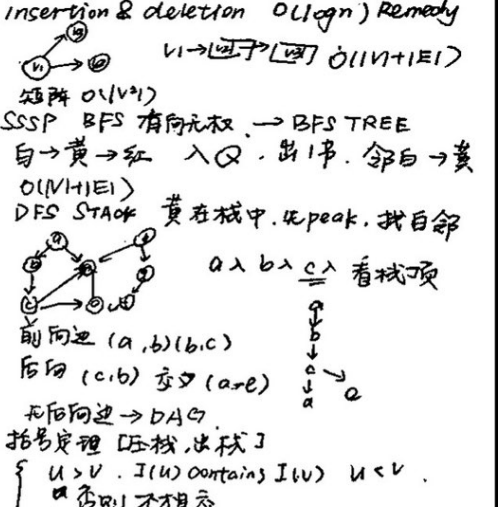 insertion & deletion O(logn) Remedy
V1→V2→V3 O(|V|+|E|)
矩阵 O(|V²|)
SSSP BFS 有向无权 → BFS TREE
白→黄→红 入Q. 出1书. 邻白→黄
O(|V|+|E|)
DFS STACK 黄在栈中. 先peak. 找白邻
a入 b入 c入 看栈顶
前向边 (a,b)(b,c)
后向 (c,b) 交叉 (a→e)
无后向边→DAG
括号定理 [压栈,出栈]
u>v. I(u) contains I(v) u<v.
否则不相交